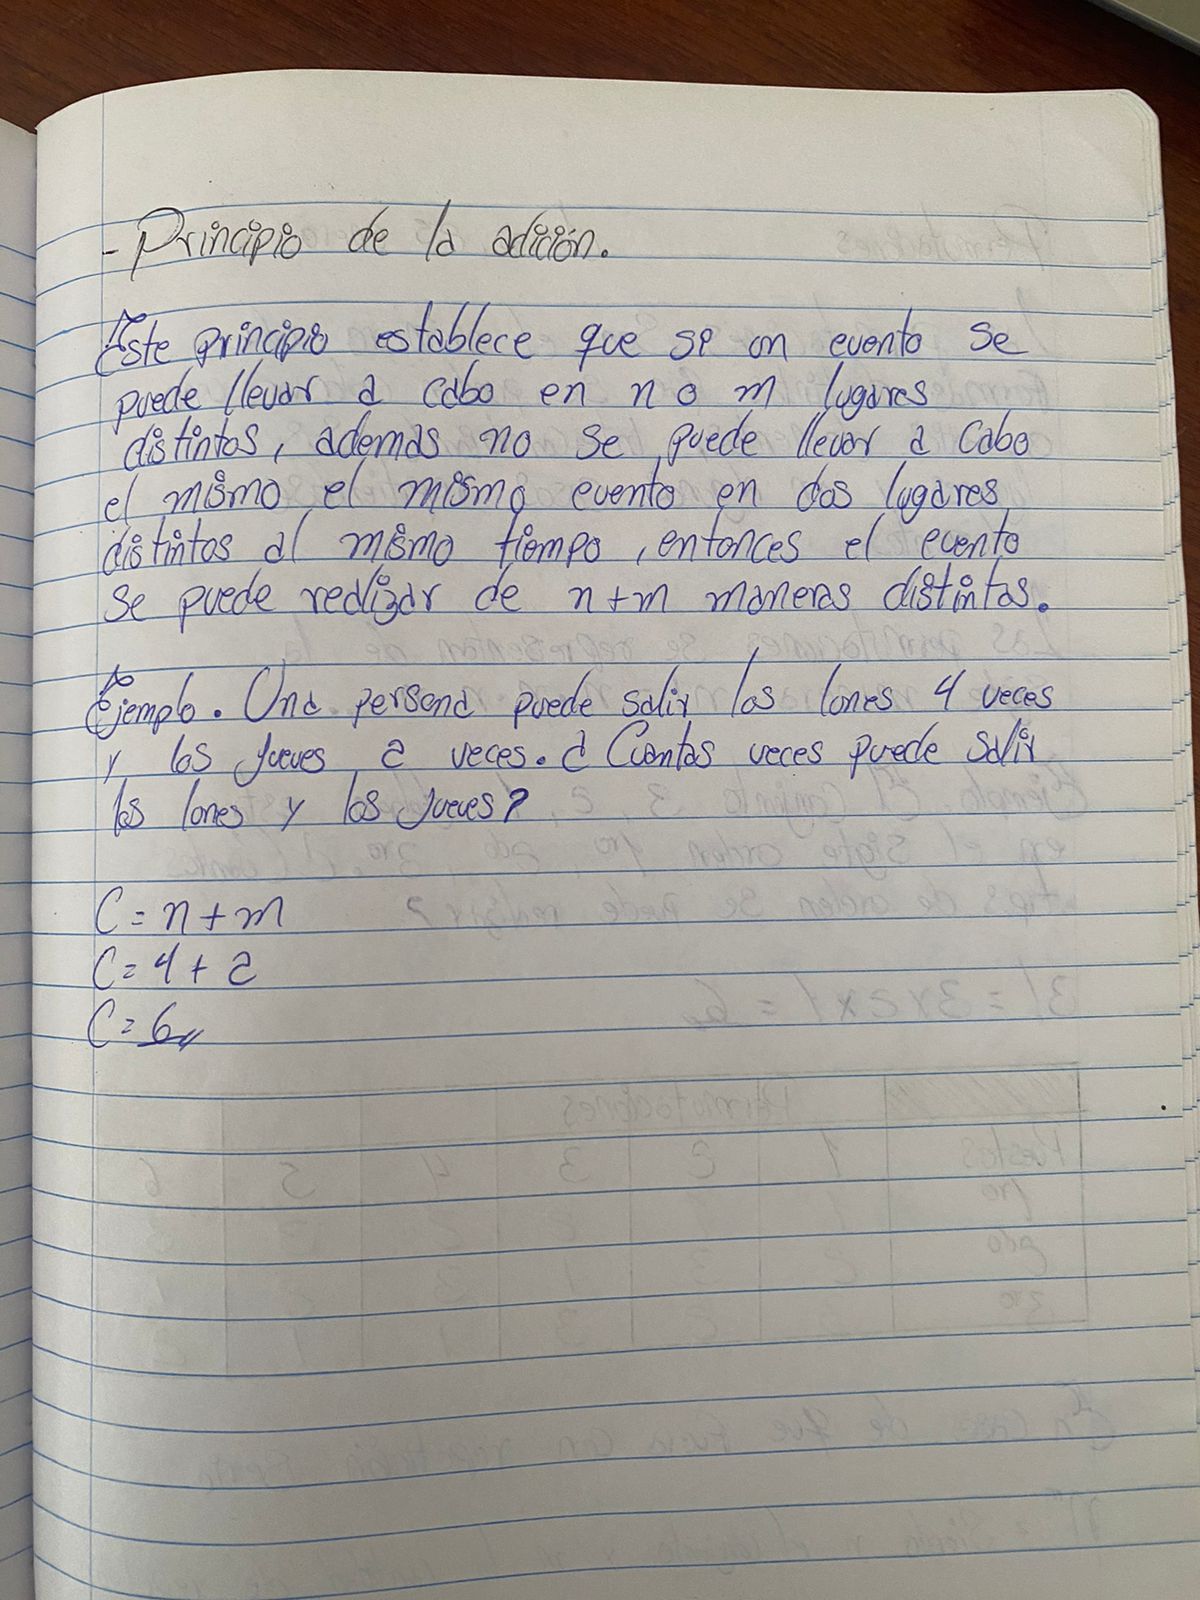 - Principio de la adición.
Este principio establece que si un evento se
puede llevar a cabo en n o m lugares
distintos, ademas no se puede llevar a cabo
el mismo el mismo evento en dos lugares
distintos al mismo tiempo, entonces el evento
se puede realizar de n+m maneras distintas.
Ejemplo. Una persona puede salir los lunes 4 veces
y los jueves 2 veces. ¿Cuantas veces puede salir
los lunes y los jueves?
C = n + m
C = 4 + 2
C = 6